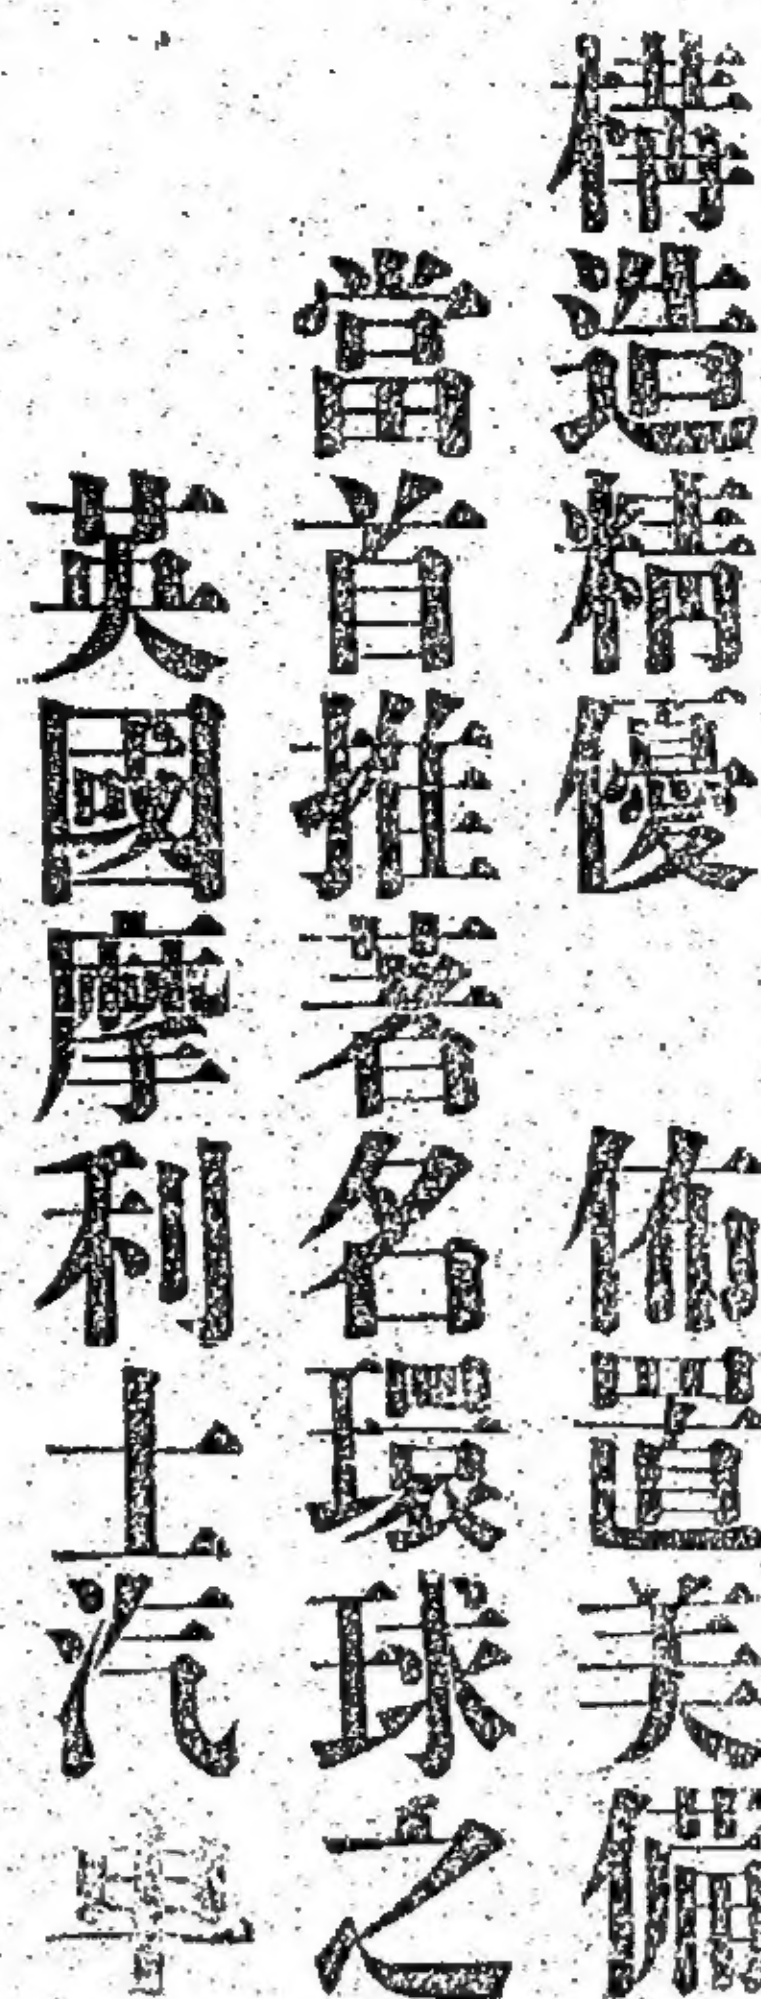 構造精優　佈置美備
當首推著名環球之
英國摩利士汽車